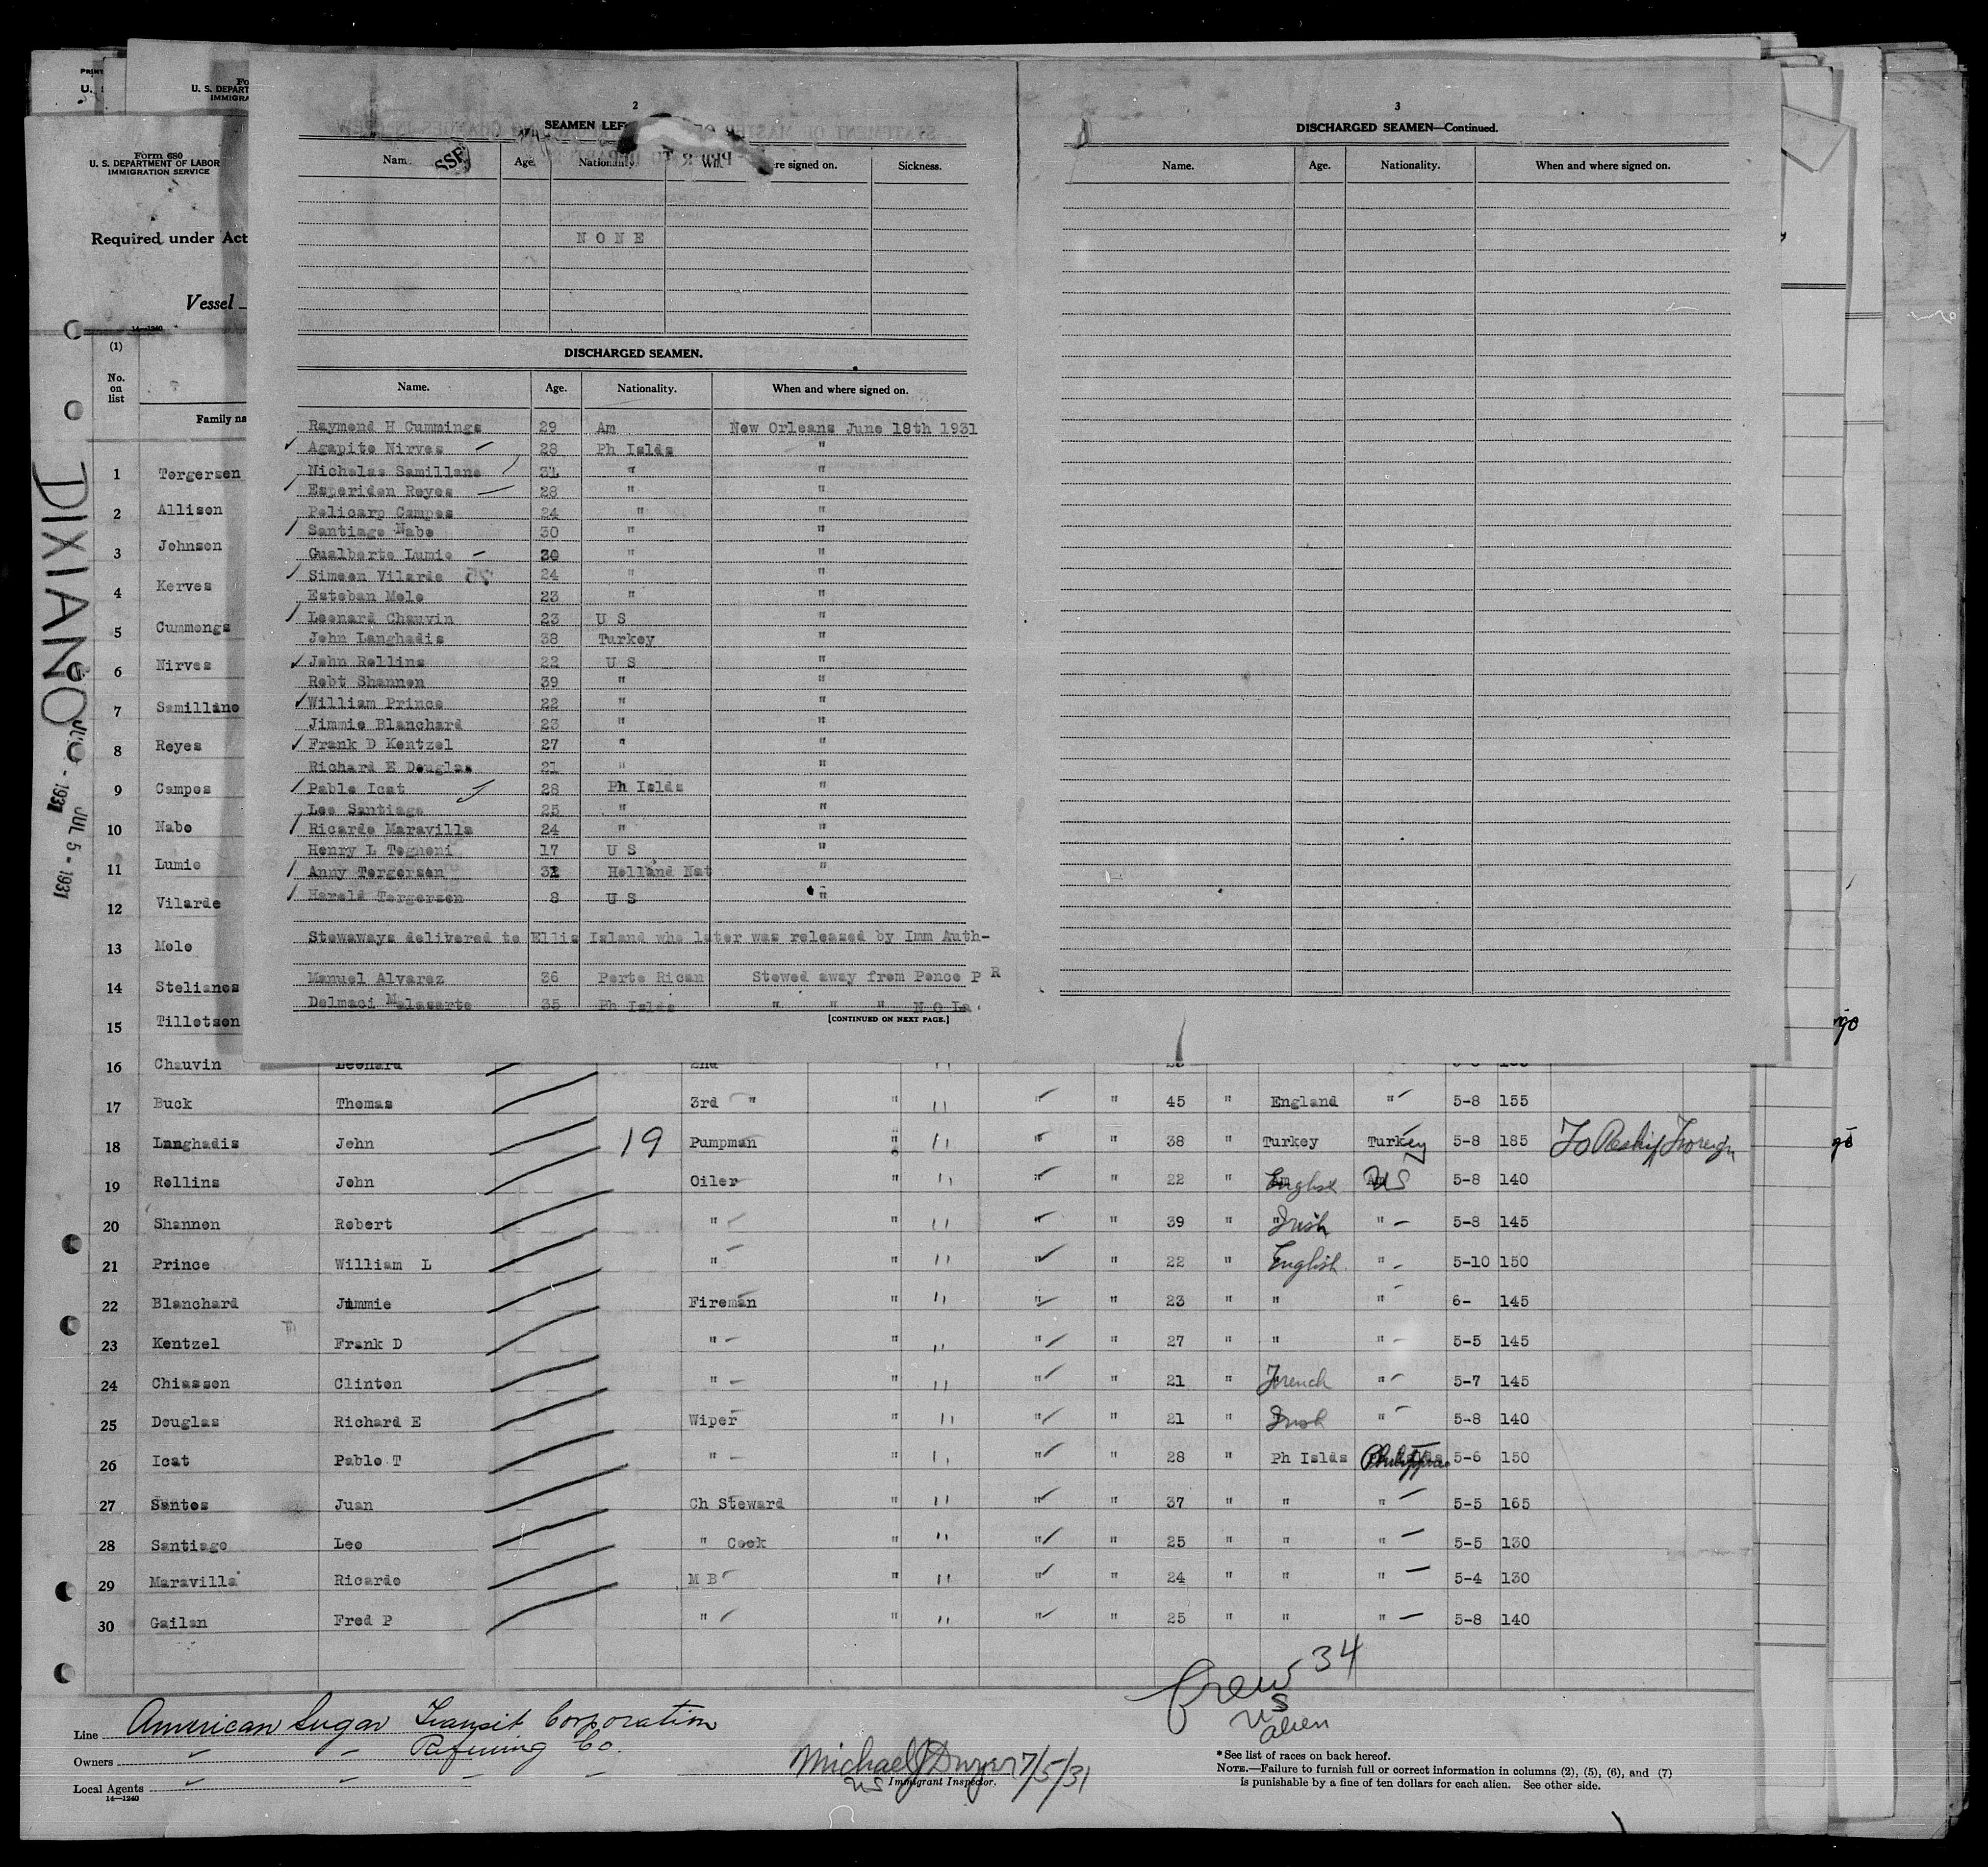 Form 680
U. S. DEPARTMENT OF LABOR
IMMIGRATION SERVICE
Required under Act
Vessel
14—1240
(1)
No.
on
list
Family na
DIXIANO
JUL 5 - 1931
2
SEAMEN LEF
Nam
Age.
Nationality
re signed on.
Sickness.
N O N E
DISCHARGED SEAMEN.
Name. Age. Nationality. When and where signed on.
Raymond H Cummings 29 Am New Orleans June 18th 1931
Agapito Nirves 28 Ph Islds "
Nicholas Samillano 31 " "
Esperidon Reyes 28 " "
Policarp Campos 24 " "
Santiago Nabo 30 " "
Gualberto Lumio 30 " "
Simeon Vilarde 24 " "
Esteban Molo 23 " "
Leonard Chauvin 23 U S "
John Langhadis 38 Turkey "
John Rollins 22 U S "
Robt Shannon 39 " "
William Prince 22 " "
Jimmie Blanchard 23 " "
Frank D Kentzel 27 " "
Richard E Douglas 21 " "
Pablo Icat 28 Ph Islds "
Leo Santiago 25 " "
Ricardo Maravilla 24 " "
Henry L Tognoni 17 U S "
Anny Torgersen Holland Nat "
Harold Torgersen 8 U S "
Stowaways delivered to Ellis Island who later was released by Imm Auth-
Manuel Alvarez 36 Porto Rican Stowed away from Ponce P R
Delmaci Malasarte 35 Ph Islds " " " N O La.
[CONTINUED ON NEXT PAGE.]
3
DISCHARGED SEAMEN—Continued.
Name. Age. Nationality. When and where signed on.
1 Torgersen
2 Allison
3 Johnson
4 Kerves
5 Cummongs
6 Nirves
7 Samillano
8 Reyes
9 Campos
10 Nabo
11 Lumio
12 Vilarde
13 Molo
14 Stelianos
15 Tillotson
16 Chauvin Leonard 2nd
17 Buck Thomas 3rd " " " " " 45 " England " 5-8 155
18 Langhadis John 19 Pumpman " " " " 38 " Turkey Turkey 5-8 185 To Reship Foreign
19 Rollins John Oiler " " " " 22 " English US 5-8 140
20 Shannon Robert " " " " " 39 " Irish " 5-8 145
21 Prince William L " " " " " 22 " English " 5-10 150
22 Blanchard Jimmie Fireman " " " " 23 " " " 6- 145
23 Kentzel Frank D " " " " " 27 " " " 5-5 145
24 Chiasson Clinton " " " " " 21 " French " 5-7 145
25 Douglas Richard E Wiper " " " " 21 " Irish " 5-8 140
26 Icat Pablo T " " " " " 28 " Ph Islds Philippine 5-6 150
27 Santos Juan Ch Steward " " " " 37 " " " 5-5 165
28 Santiago Leo " Cook " " " " 25 " " " 5-5 130
29 Maravilla Ricardo M B " " " " 24 " " " 5-4 130
30 Gailan Fred P " " " " " 25 " " " 5-8 140
Crew 34
US
alien
Line American Sugar Transit Corporation
Owners " " Refining Co.
Local Agents " " " "
14—1240
Michael J Dwyer 7/5/31
US Immigrant Inspector.
*See list of races on back hereof.
NOTE.—Failure to furnish full or correct information in columns (2), (5), (6), and (7)
is punishable by a fine of ten dollars for each alien. See other side.